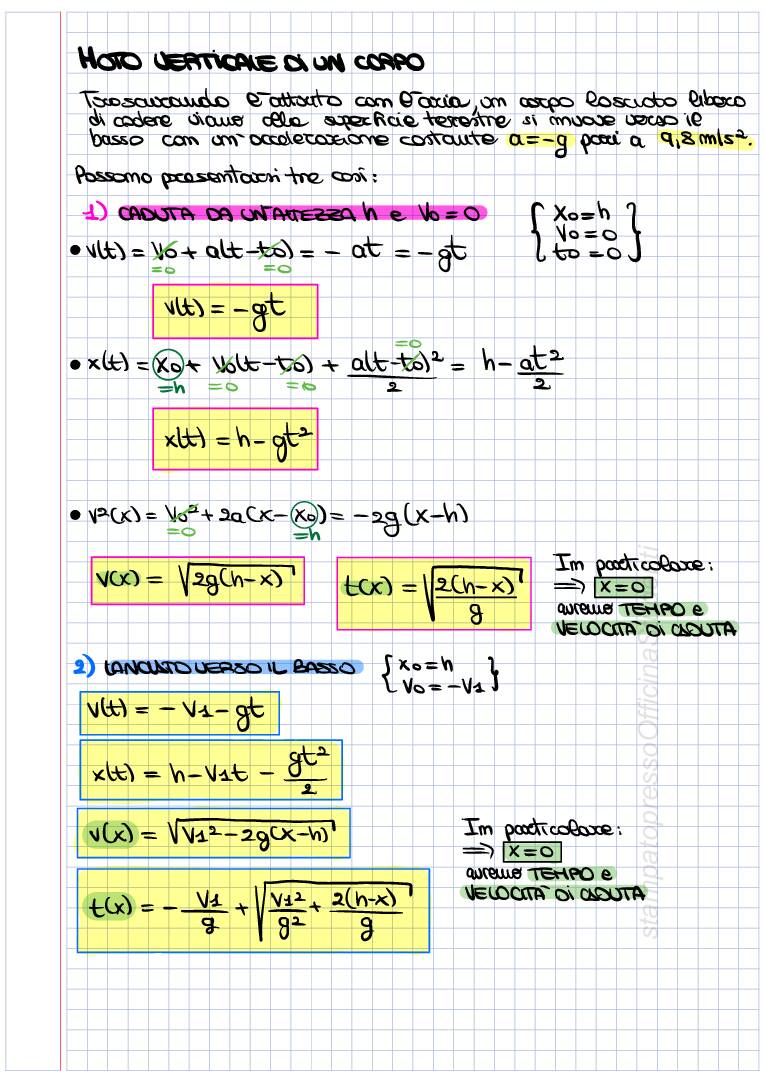 MOTO VERTICALE DI UN CORPO
Trascurando l'attrito con l'aria, un corpo lasciato libero
di cadere vicino alla superficie terrestre si muove verso il
basso con un'accelerazione costante a=-g pari a 9,8 m/s².
Possono presentarsi tre casi:
1) CADUTA DA UN'ALTEZZA h e V0 = 0
{ X0 = h
V0 = 0
t0 = 0 }
• v(t) = V0 + a(t-t0) = - at = -gt
=0 =0
v(t) = -gt
=0
• x(t) = X0 + V0(t-t0) + a(t-t0)²/2 = h - at²/2
=h =0 =0
x(t) = h - gt²
• v²(x) = V0² + 2a(x-x0) = -2g(x-h)
=0 =h
v(x) = √2g(h-x)
t(x) = √2(h-x)/g
In particolare:
⟹ x=0
avremo TEMPO e
VELOCITÀ DI CADUTA
2) LANCIATO VERSO IL BASSO
{ x0 = h
V0 = -V1 }
v(t) = - V1 - gt
x(t) = h - V1t - gt²/2
v(x) = √V1² - 2g(x-h)
In particolare:
⟹ x=0
avremo TEMPO e
VELOCITÀ DI CADUTA
t(x) = - V1/g + √V1²/g² + 2(h-x)/g